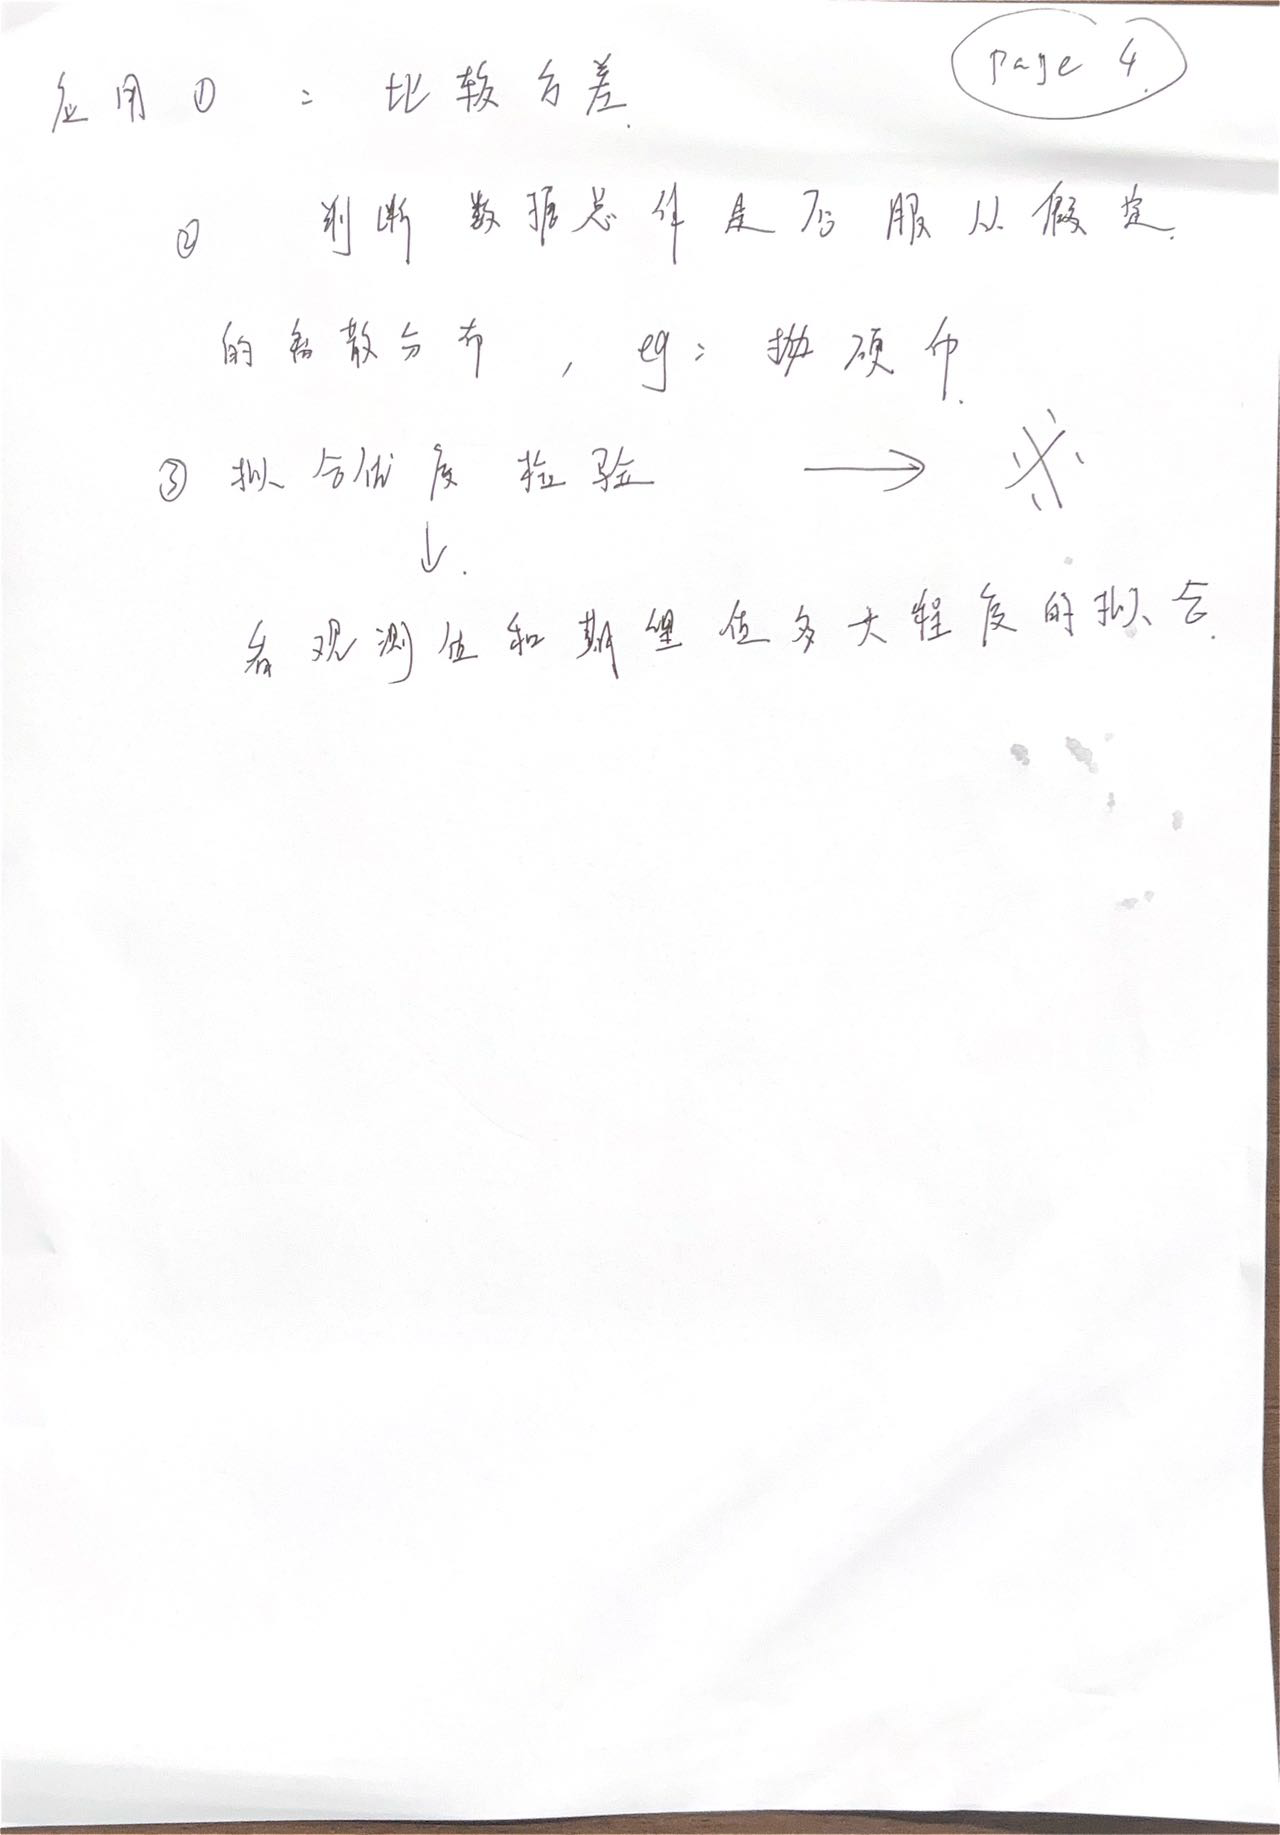 page 4
应用 ① : 比较方差.
② 判断数据总体是否服从假定.
的离散分布 , eg: 抛硬币.
③ 拟合优度检验 → ※
↓.
看观测值和期望值多大程度的拟合.